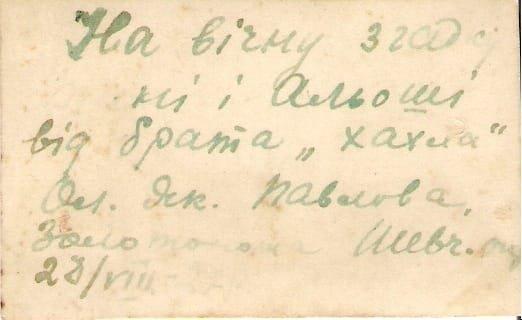 На вічну згаду
ні і Альоші
від брата „хахла"
Ол. Як. Павлова,
Золотоноша Шевч.
28/VIII